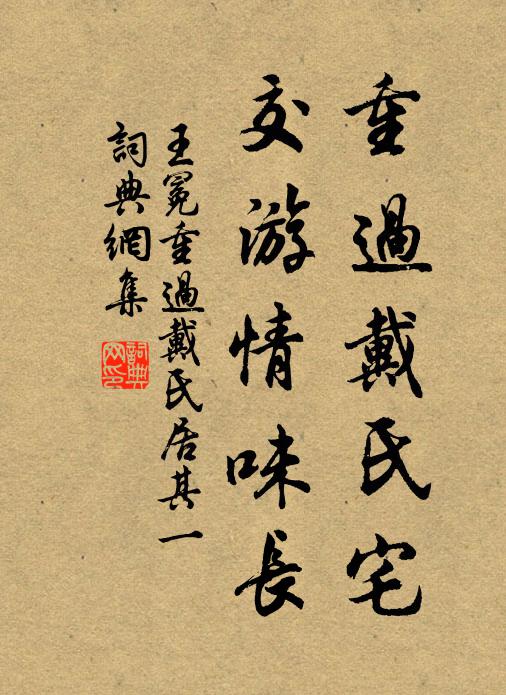 重過戴氏宅
交游情味長
王冕重過戴氏居其一
詞典網集
詞典网印